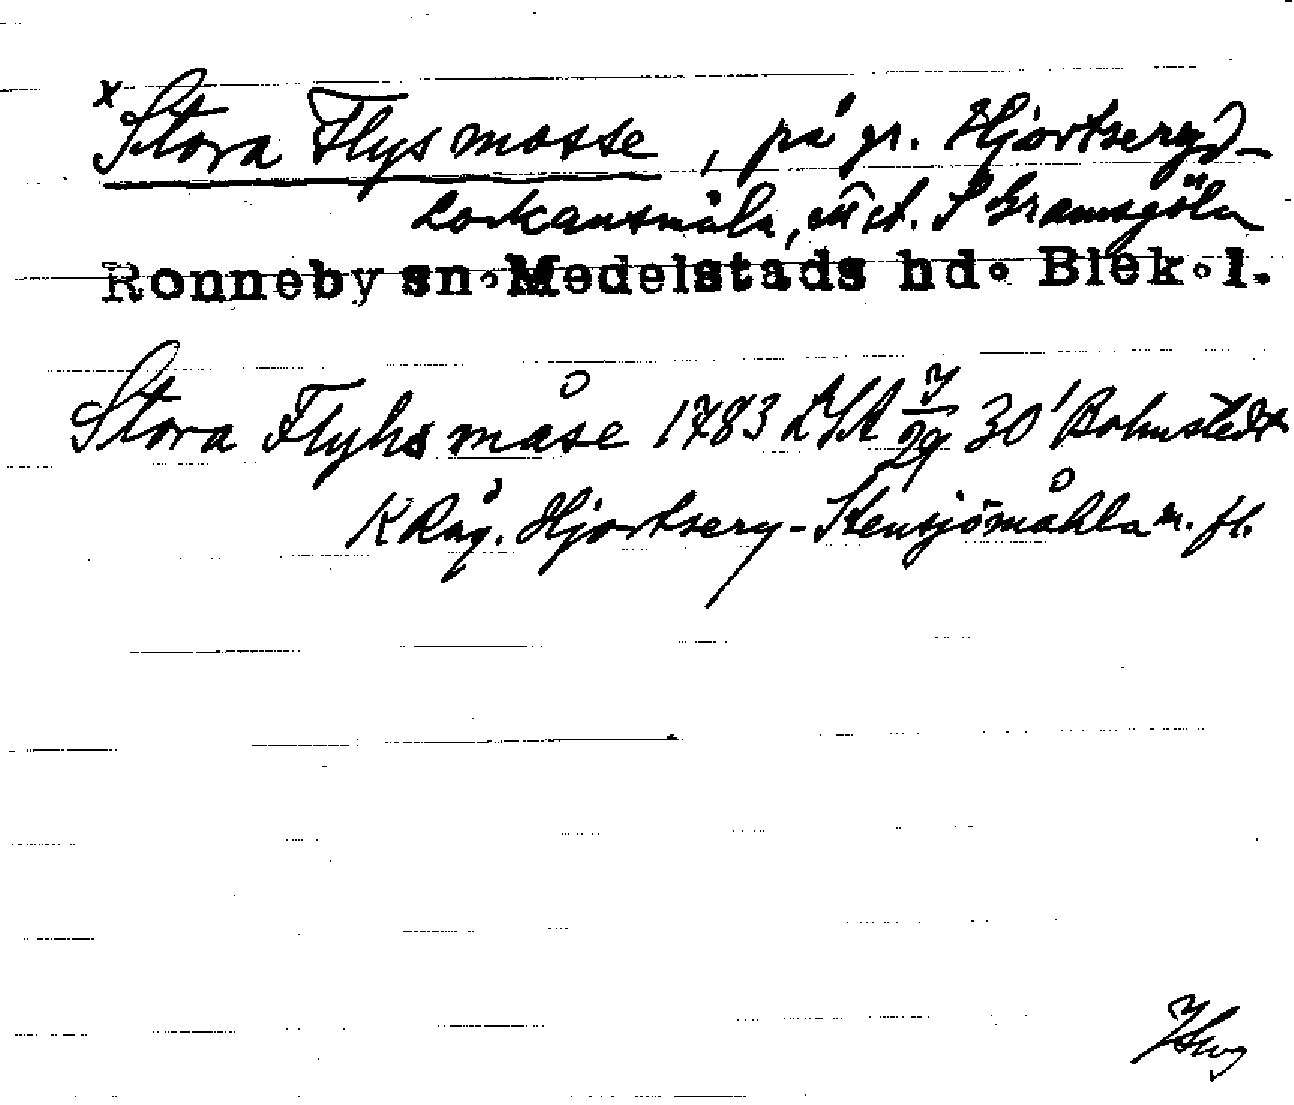 x Stora Flysmosse, på gr. Hjortseryd-
Lockansmåla, S Gramsgöla
Ronneby sn. Medelstads hd. Blek.l.
Stora Flyhs måse 1783 LSA 30' Bohnstedt
K Råg. Hjortsery-Stensjömåhla m. fl.